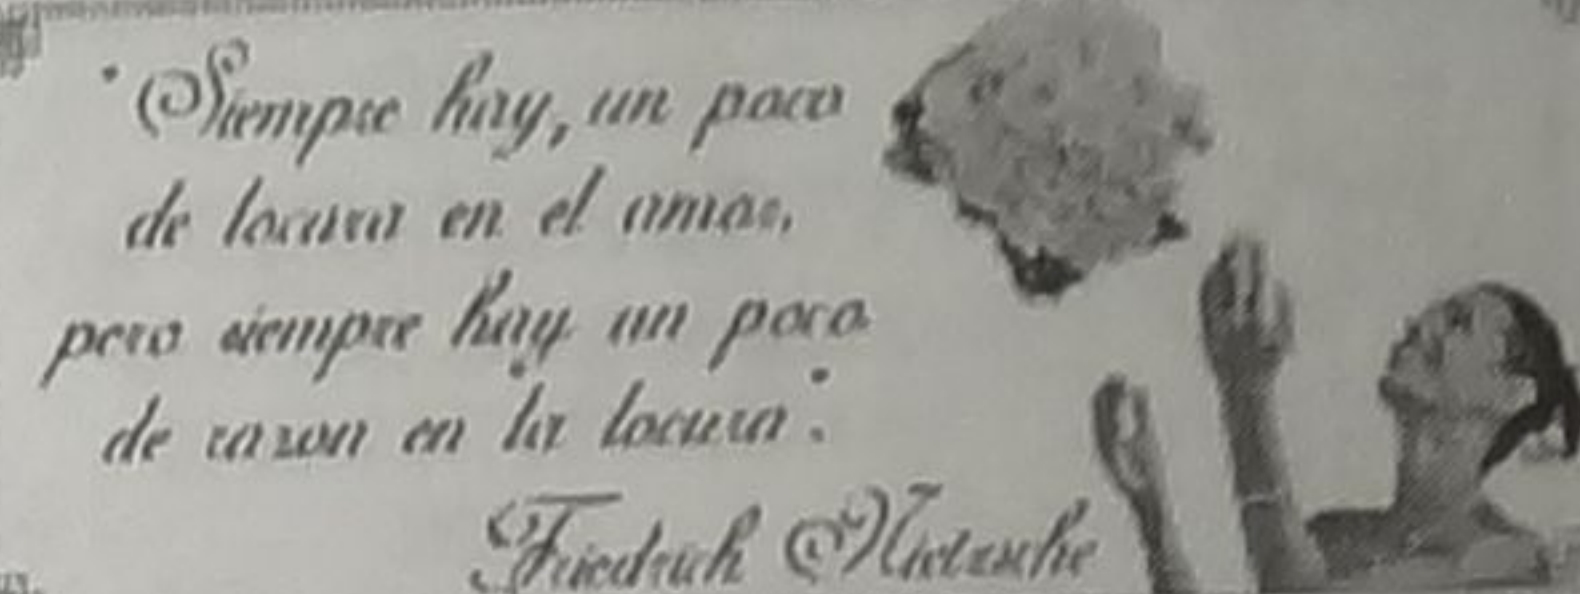 "Siempre hay, un poco
de locura en el amor,
pero siempre hay un poco
de razon en la locura".
Friedrich Nietzsche